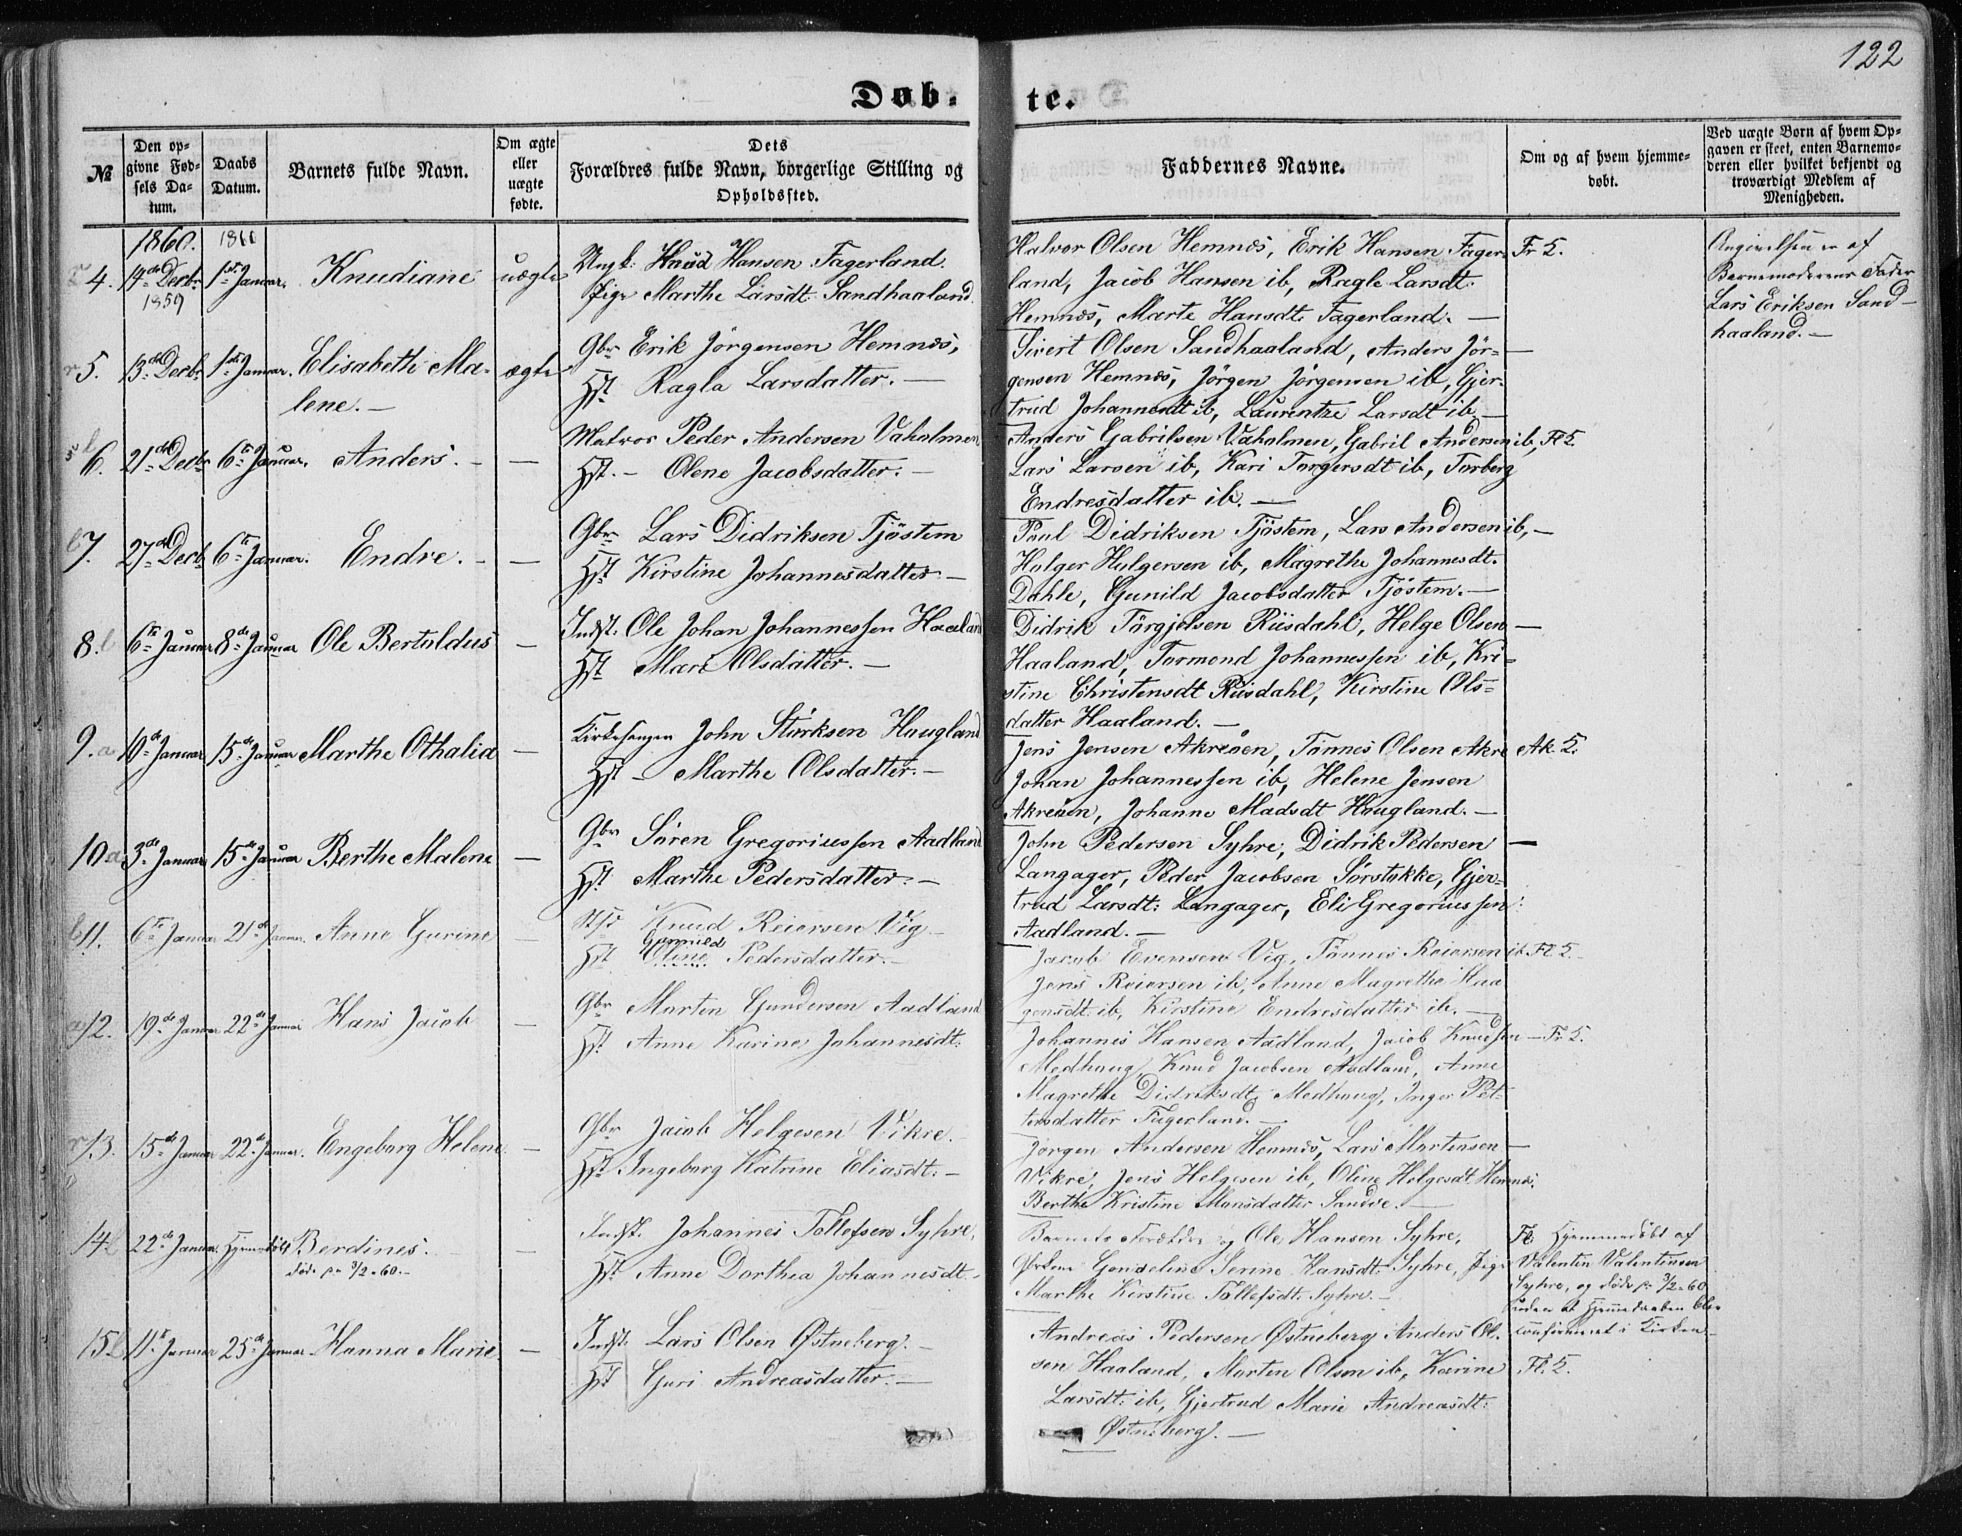 122
Døb-
te.
№
Den op-
givne Fød-
sels Da-
tum.
Daabs
Datum.
Barnets fulde Navn.
Om ægte
eller
uægte
fødte.
Dets
Forældres fulde Navn, borgerlige Stilling og
Opholdssted.
Faddernes Navne.
Om og af hvem hjemme-
døbt.
Ved uægte Børn af hvem Op-
gaven er skeet, enten Barnemo-
deren eller hvilket bekjendt og
troværdigt Medlem af
Menigheden.
1860.
4. 14de Decbr 1ste Januar. Knudiane uægte
1859
Ungk: Knud Hansen Fagerland.
Pige Marthe Larsdt. Sandhaaland
Halvor Olsen Hemnes, Erik Hansen Fager- Fr 5.
land, Jacob Hansen ib, Ragle Larsdt.
Hemnes, Marte Hansdt. Fagerland. —
Angivelsen er af
Barnemoderens Fader
Lars Eriksen Sand-
haaland. —
r 5. 13de Decbr 1ste Januar. Elisabeth Ma- ægte
lene. —
Gbr Erik Jörgensen Hemnes,
Hst. Ragla Larsdatter. —
Sivert Olsen Sandhaaland, Anders Jör- —
gensen Hemnes, Jörgen Jörgensen ib, Gjer-
trud Johannesdt ib, Laurentze Larsdt ib. —
6. 21de Decbr 6te Januar. Anders. — —
Matros Peder Andersen Vaholmen
Hst. - Olene Jacobsdatter. —
Anders Gabrielsen Vaholmen, Gabril Andersen ib, Fl 5.
Lars Larsen ib, Kari Torgersdt ib, Torberg
Endresdatter ib. —
b 7. 27de Decb. 6te Januar. Endre. — —
Gbr Lars Didriksen Tjöstem
Hst Kirstine Johannesdatter —
Poul Didriksen Tjöstem, Lars Andersen ib, —
Holger Hulgersen ib, Magrethe Johannesdt.
Dahle, Gunild Jacobsdatter Tjöstem. —
8. b 6te Januar 8de Januar Ole Bertuldus —
Indst. Ole Johan Johannessen Haaland
Hst Mari Olsdatter. —
Didrik Törgjelsen Riisdahl, Helge Olsen —
Haaland, Tormond Johannessen ib, Kri-
stine Christensdt Riisdahl, Kirstine Ols-
datter Haaland. —
9. a 10de Januar 15de Januar Marthe Othalia —
Kirkesanger John Störksen Haugland
Hst - Marthe Olsdatter. —
Jens Jensen Akreöen, Tönnes Olsen Akre Ak 5.
Johan Johannessen ib, Helene Jensen
Akreöen, Johanne Madsdt Haugland. —
10 a 3de Januar 15de Januar Berthe Malene —
Gbr Sören Gregoriussen Aadland
Hst. Marthe Pedersdatter. —
John Pedersen Syhre, Didrik Pedersen —
Langager, Peder Jacobsen Sörstokke, Gjer-
trud Larsdt: Langager, Eli Gregoriussen
Aadland. —
b 11. 6te Januar 21de Januar. Anne Gurine —
Knud Reiersen Vig
Gunnild
Hst Oline Pedersdatter. —
Jacob Evensen Vig, Tönnes Reiersen ib Fl 5.
Jens Reiersen ib, Anne Magrethe Haa
gensdt ib, Kirstine Endresdatter ib. —
a 12. 19de Januar 22de Januar Hans Jacob —
Gbr Morten Gundersen Aadland
Hst. Anne Karine Johannesdt.
Johannes Hansen Aadland, Jacob Knudsen — Fr 5.
Medhaug, Knud Jacobsen Aadland, Anne
Magrethe Didriksdt. Medhaug, Inger Pet-
tersdatter Fagerland. —
r 13. 15de Januar 22de Januar. Engeborg Helene. —
Gbr Jacob Helgesen Vikre.
Hst Ingeborg Katrine Eliasdt. —
Jörgen Andersen Hemnes, Lars Mortensen —
Vikre, Jens Helgesen ib, Oline Helgesdt Hemnes.
Berthe Kristine Monsdatter Sandve. —
14. 22de Januar. Hjemmedöbt Berdines. —
död. pr 3/2-60. —
Indst. Johannes Tollefsen Syhre,
Hst Anne Dorthea Johannesdt —
Barnets Forældre og Ole Hansen Syhre,
Gondeline Serine Hansdt: Syhre, Pige
Marthe Kirstine Tollefsdt. Syhre. —
Fl. Hjemmedöbt af
Valentin Valentinsen
Syhre, og döde pr 3/2-60
uden at Hjemmedaaben blev
confirmeret i Kirken
15 b 11te Januar 25de Januar Hanna Marie —
Indst: Lars Olsen Østneberg. —
Hst Guri Andreasdatter. —
Andreas Pedersen Østneberg Anders Ol-
sen Haaland, Morten Olsen ib, Karine Fl. 5.
Larsdt: ib, Gjertrud Marie Andreasdt:
Østneberg. —